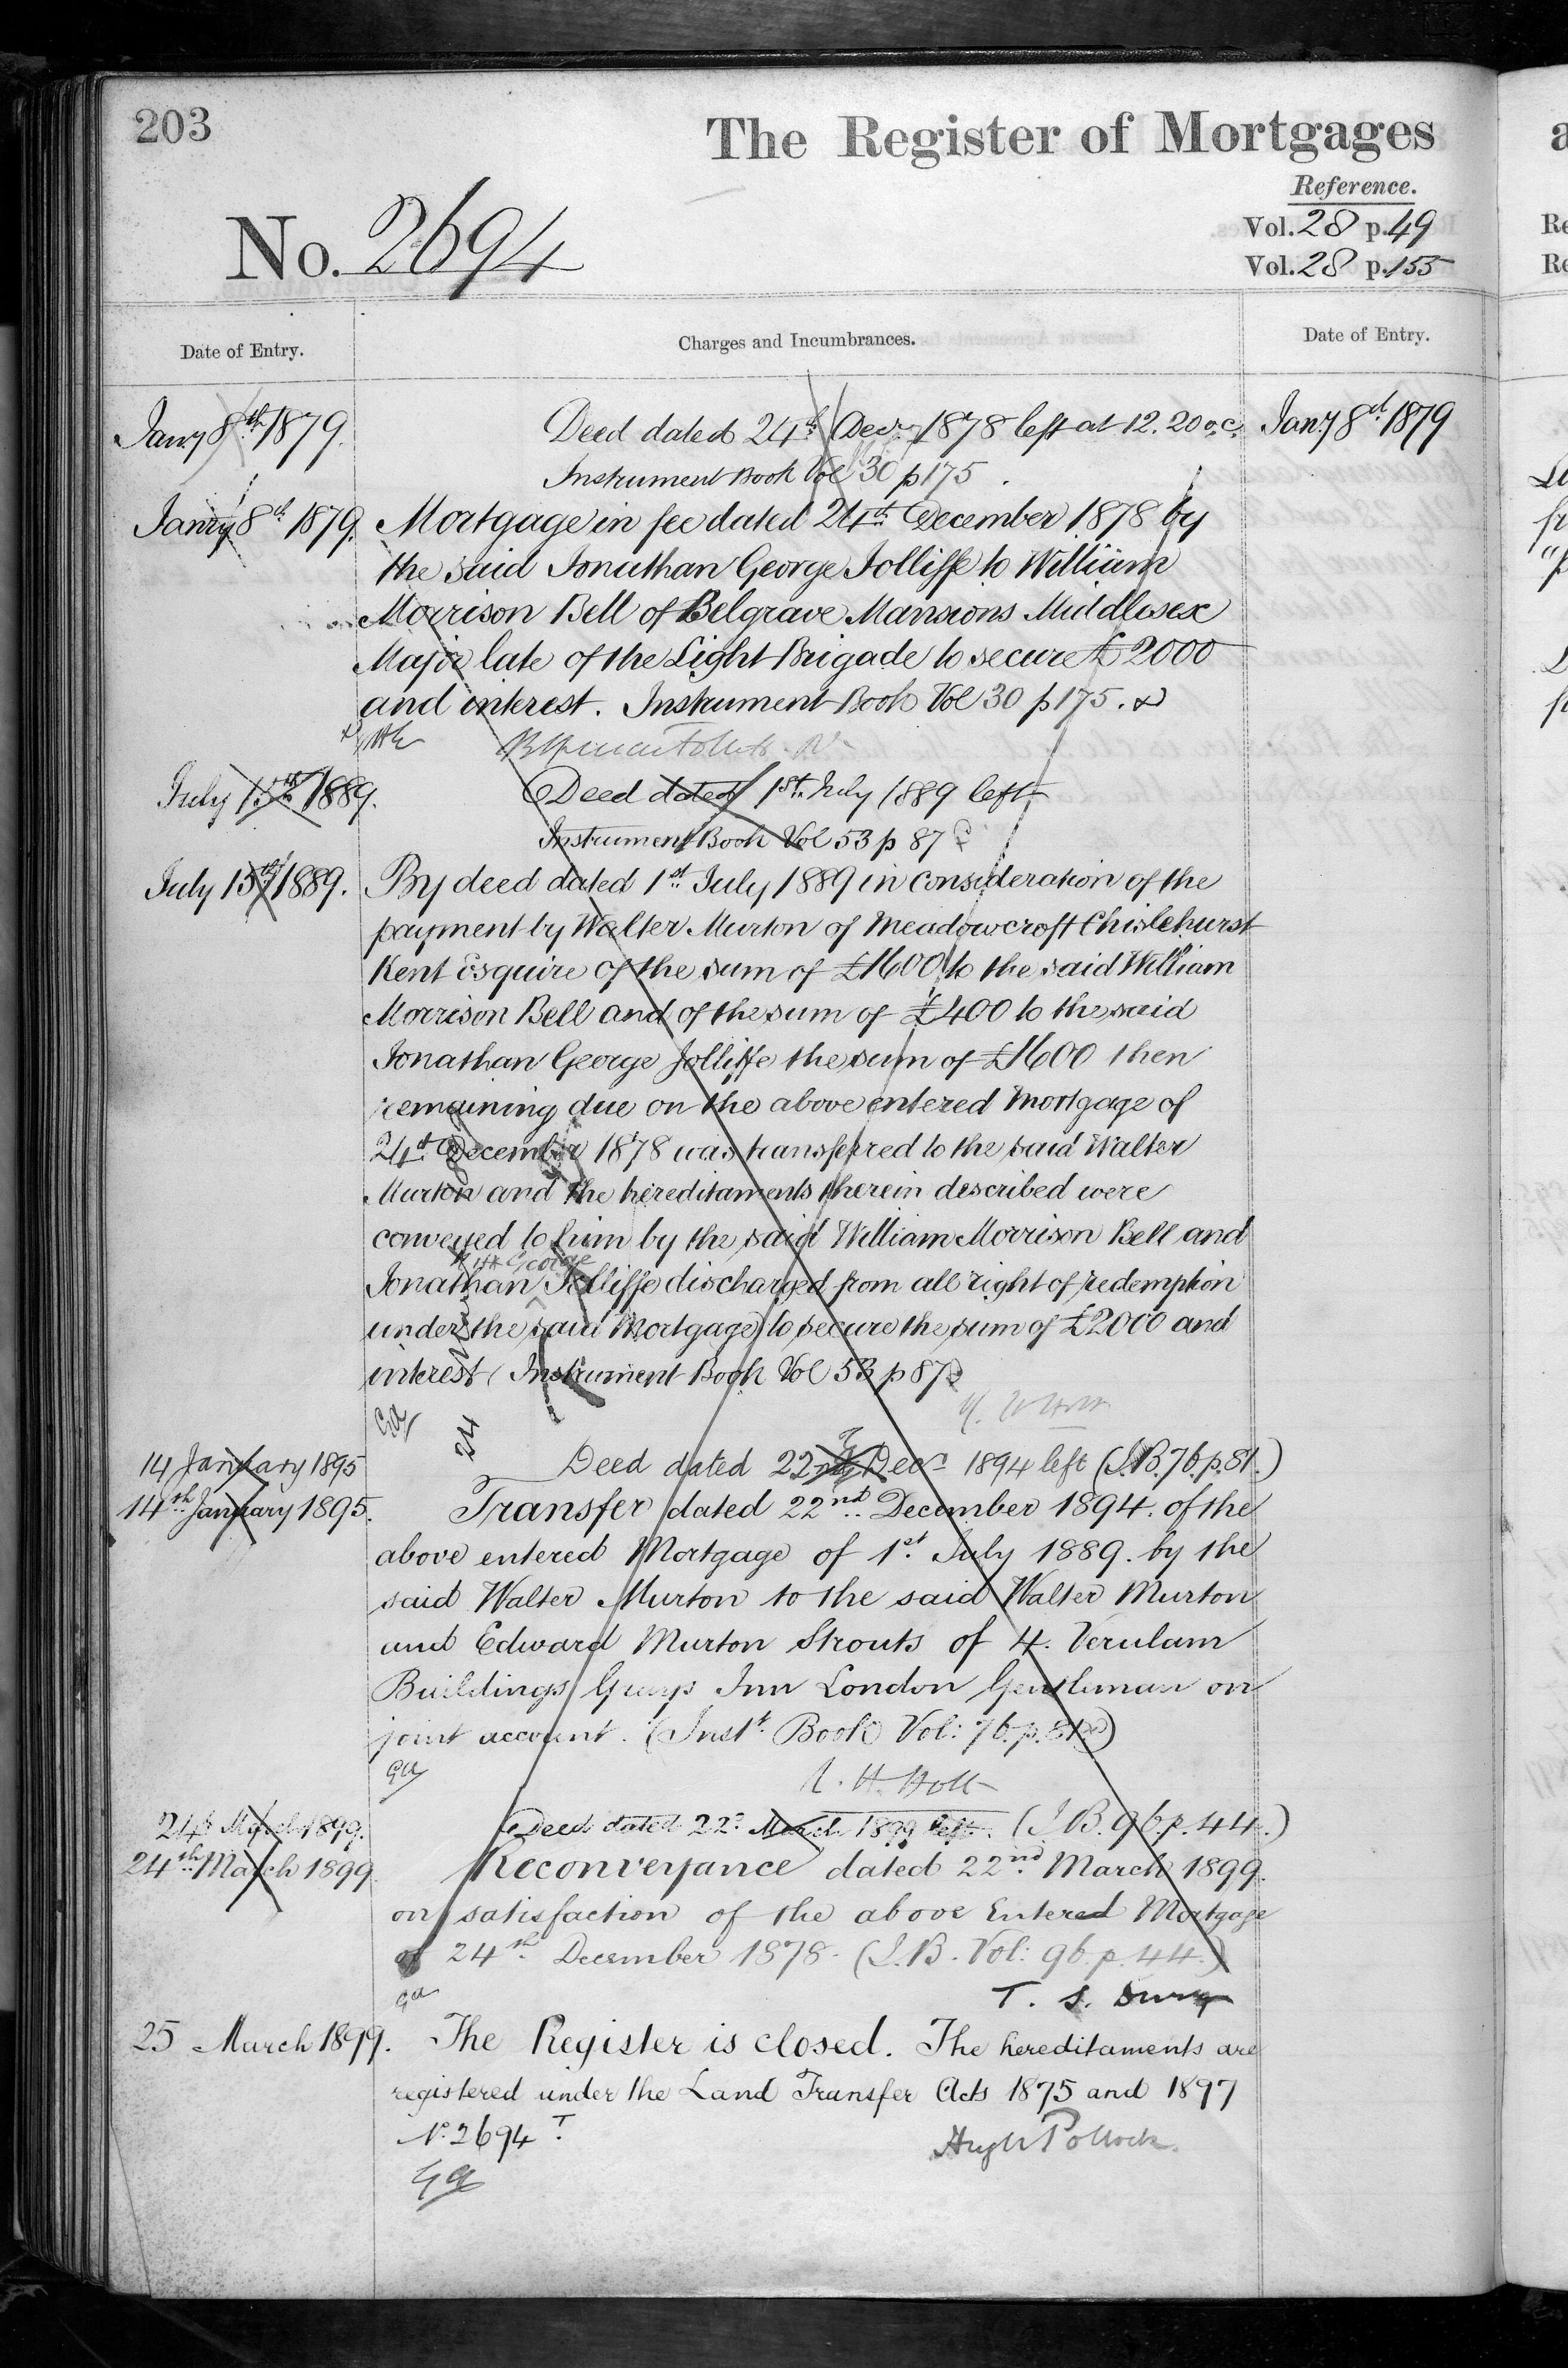 203
The Register of Mortgages
Reference.
No. 2694
Vol. 28 p. 49
Vol. 28 p. 155
Date of Entry.
Charges and Incumbrances.
Date of Entry.
Jany 8th 1879.
Deed dated 24th Decr 1878 left at 12.20 o.c.
Jany 8th 1879
Instrument Book Vol 30 p 175
Jany 8th 1879.
Mortgage in fee dated 24th December 1878 by
the said Jonathan George Jolliffe to William
Morrison Bell of Belgrave Mansions Middlesex
Major late of the Light Brigade to secure £2000
and interest. Instrument Book Vol 30 p 175.
July 15th 1889.
Deed dated 1st July 1889 left
Instrument Book Vol 53 p 87
July 15th 1889.
By deed dated 1st July 1889 in consideration of the
payment by Walter Murton of Meadowcroft Chislehurst
Kent Esquire of the sum of £1600 to the said William
Morrison Bell and of the sum of £400 to the said
Jonathan George Jolliffe the sum of £1600 then
remaining due on the above entered Mortgage of
24th December 1878 was transferred to the said Walter
Murton and the hereditaments therein described were
conveyed to him by the said William Morrison Bell and
George
Jonathan Jolliffe discharged from all right of redemption
under the said Mortgage to secure the sum of £2000 and
interest (Instrument Book Vol 53 p 87
14 January 1895
Deed dated 22 Decr 1894 left (I.B. 76. p. 81.)
14th January 1895.
Transfer dated 22nd December 1894. of the
above entered Mortgage of 1st July 1889. by the
said Walter Murton to the said Walter Murton
and Edward Murton Strouts of 4. Verulam
Buildings Grays Inn London Gentleman on
joint account. (Instt Book Vol: 76. p. 81)
Ga
R. H. Holt
24th March 1899.
Deed dated 22d March 1899 left. (I.B. 96. p. 44.)
24th March 1899.
Reconveyance dated 22nd March 1899.
on satisfaction of the above Entered Mortgage
of 24th December 1878. (I.B. Vol: 96. p. 44.)
Ga
T. S.
25 March 1899.
The Register is closed. The hereditaments are
registered under the Land Transfer Acts 1875 and 1897
No. 2694 T.
Hugh Pollock.
Ga